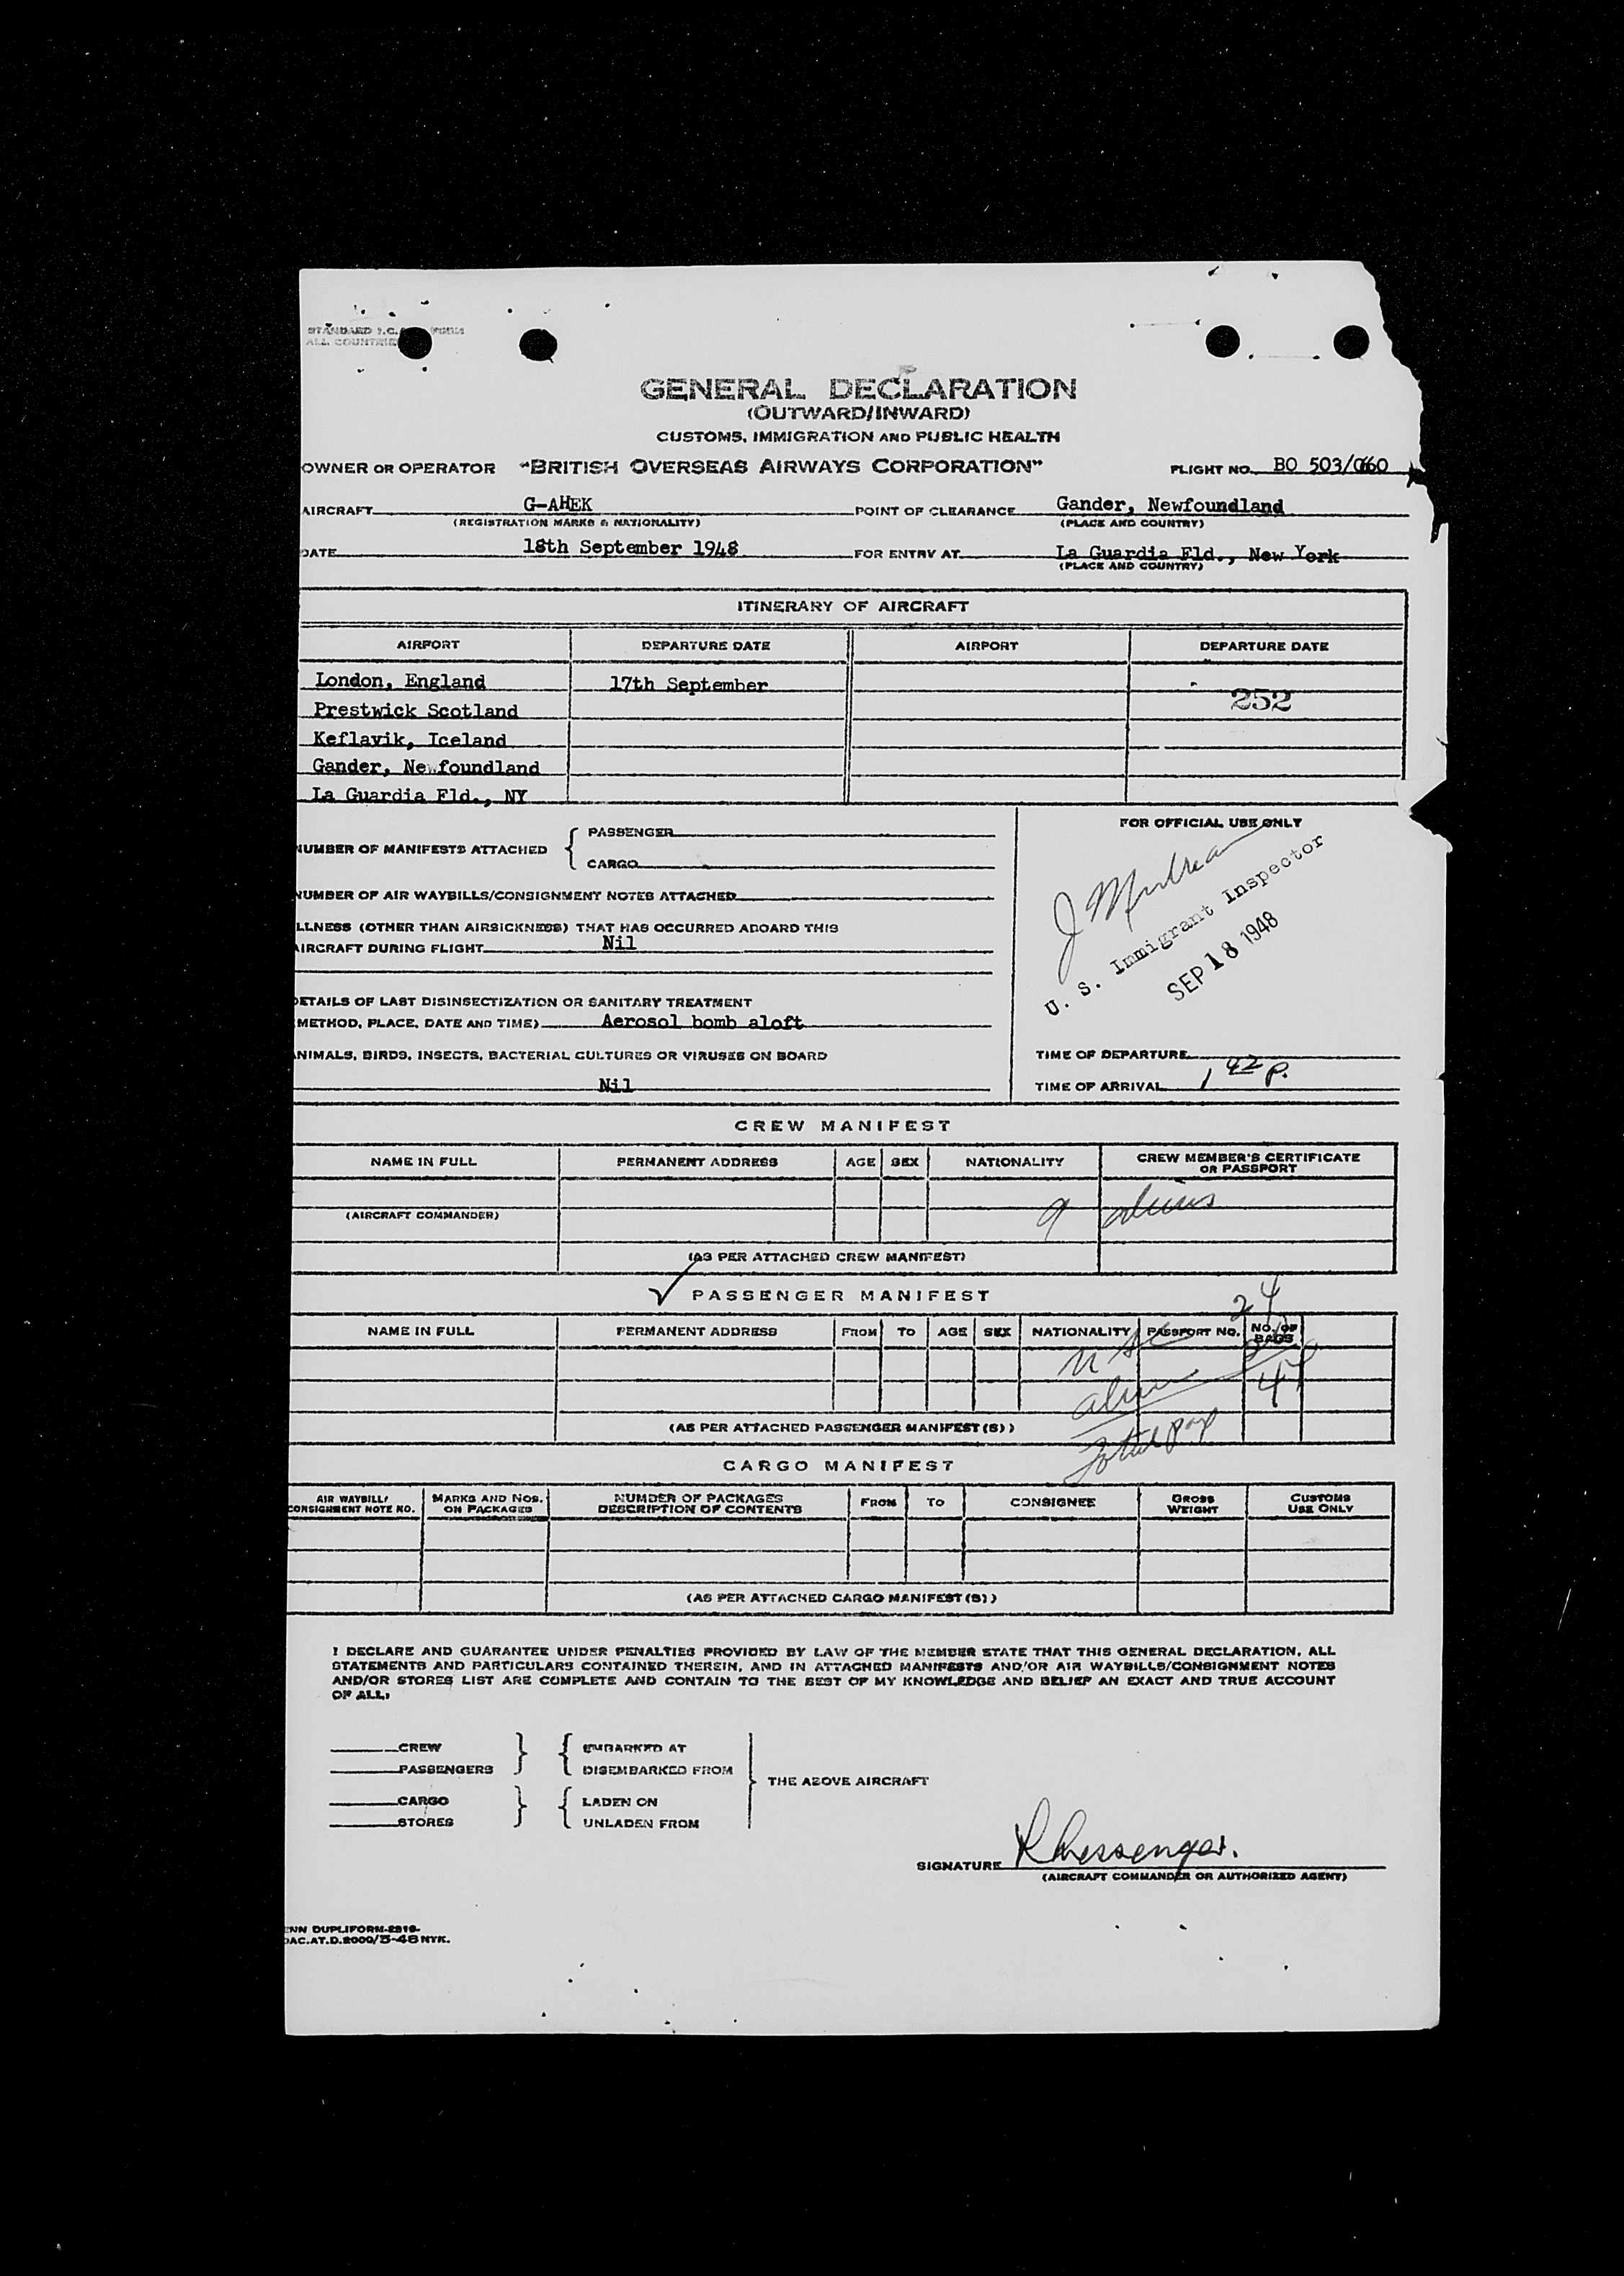 STANDARD I.C. FORM
ALL COUNTRIE
GENERAL DECLARATION
(OUTWARD/INWARD)
CUSTOMS, IMMIGRATION AND PUBLIC HEALTH
OWNER OR OPERATOR "BRITISH OVERSEAS AIRWAYS CORPORATION" FLIGHT NO. BO 503/060
AIRCRAFT G-AHEK POINT OF CLEARANCE Gander, Newfoundland
(REGISTRATION MARKS & NATIONALITY) (PLACE AND COUNTRY)
DATE 18th September 1948 FOR ENTRY AT La Guardia Fld., New York
(PLACE AND COUNTRY)
ITINERARY OF AIRCRAFT
AIRPORT DEPARTURE DATE AIRPORT DEPARTURE DATE
London, England 17th September
252
Prestwick Scotland
Keflavik, Iceland
Gander, Newfoundland
La Guardia Fld., NY
FOR OFFICIAL USE ONLY
PASSENGER
NUMBER OF MANIFESTS ATTACHED
CARGO
NUMBER OF AIR WAYBILLS/CONSIGNMENT NOTES ATTACHED
LLNESS (OTHER THAN AIRSICKNESS) THAT HAS OCCURRED ABOARD THIS
AIRCRAFT DURING FLIGHT Nil
U. S. Immigrant Inspector
SEP 18 1948
DETAILS OF LAST DISINSECTIZATION OR SANITARY TREATMENT
(METHOD, PLACE, DATE AND TIME) Aerosol bomb aloft
ANIMALS, BIRDS, INSECTS, BACTERIAL CULTURES OR VIRUSES ON BOARD
Nil
TIME OF DEPARTURE
TIME OF ARRIVAL 1 42 P.
CREW MANIFEST
NAME IN FULL PERMANENT ADDRESS AGE SEX NATIONALITY CREW MEMBER'S CERTIFICATE OR PASSPORT
9 aliens
(AIRCRAFT COMMANDER)
(AS PER ATTACHED CREW MANIFEST)
PASSENGER MANIFEST
24
NAME IN FULL PERMANENT ADDRESS FROM TO AGE SEX NATIONALITY PASSPORT NO. NO. OF BAGS
(AS PER ATTACHED PASSENGER MANIFEST (S) )
CARGO MANIFEST
AIR WAYBILL/ CONSIGNMENT NOTE NO. MARKS AND NOS. ON PACKAGES NUMBER OF PACKAGES DESCRIPTION OF CONTENTS FROM TO CONSIGNEE GROSS WEIGHT CUSTOMS USE ONLY
(AS PER ATTACHED CARGO MANIFEST (S) )
I DECLARE AND GUARANTEE UNDER PENALTIES PROVIDED BY LAW OF THE MEMBER STATE THAT THIS GENERAL DECLARATION, ALL
STATEMENTS AND PARTICULARS CONTAINED THEREIN, AND IN ATTACHED MANIFESTS AND/OR AIR WAYBILLS/CONSIGNMENT NOTES
AND/OR STORES LIST ARE COMPLETE AND CONTAIN TO THE BEST OF MY KNOWLEDGE AND BELIEF AN EXACT AND TRUE ACCOUNT
OF ALL:
CREW EMBARKED AT
PASSENGERS DISEMBARKED FROM
THE ABOVE AIRCRAFT
CARGO LADEN ON
STORES UNLADEN FROM
SIGNATURE R Messenger.
(AIRCRAFT COMMANDER OR AUTHORIZED AGENT)
ENN DUPLIFORM-2819-
OAC.AT.D.2000/5-48 NYK.